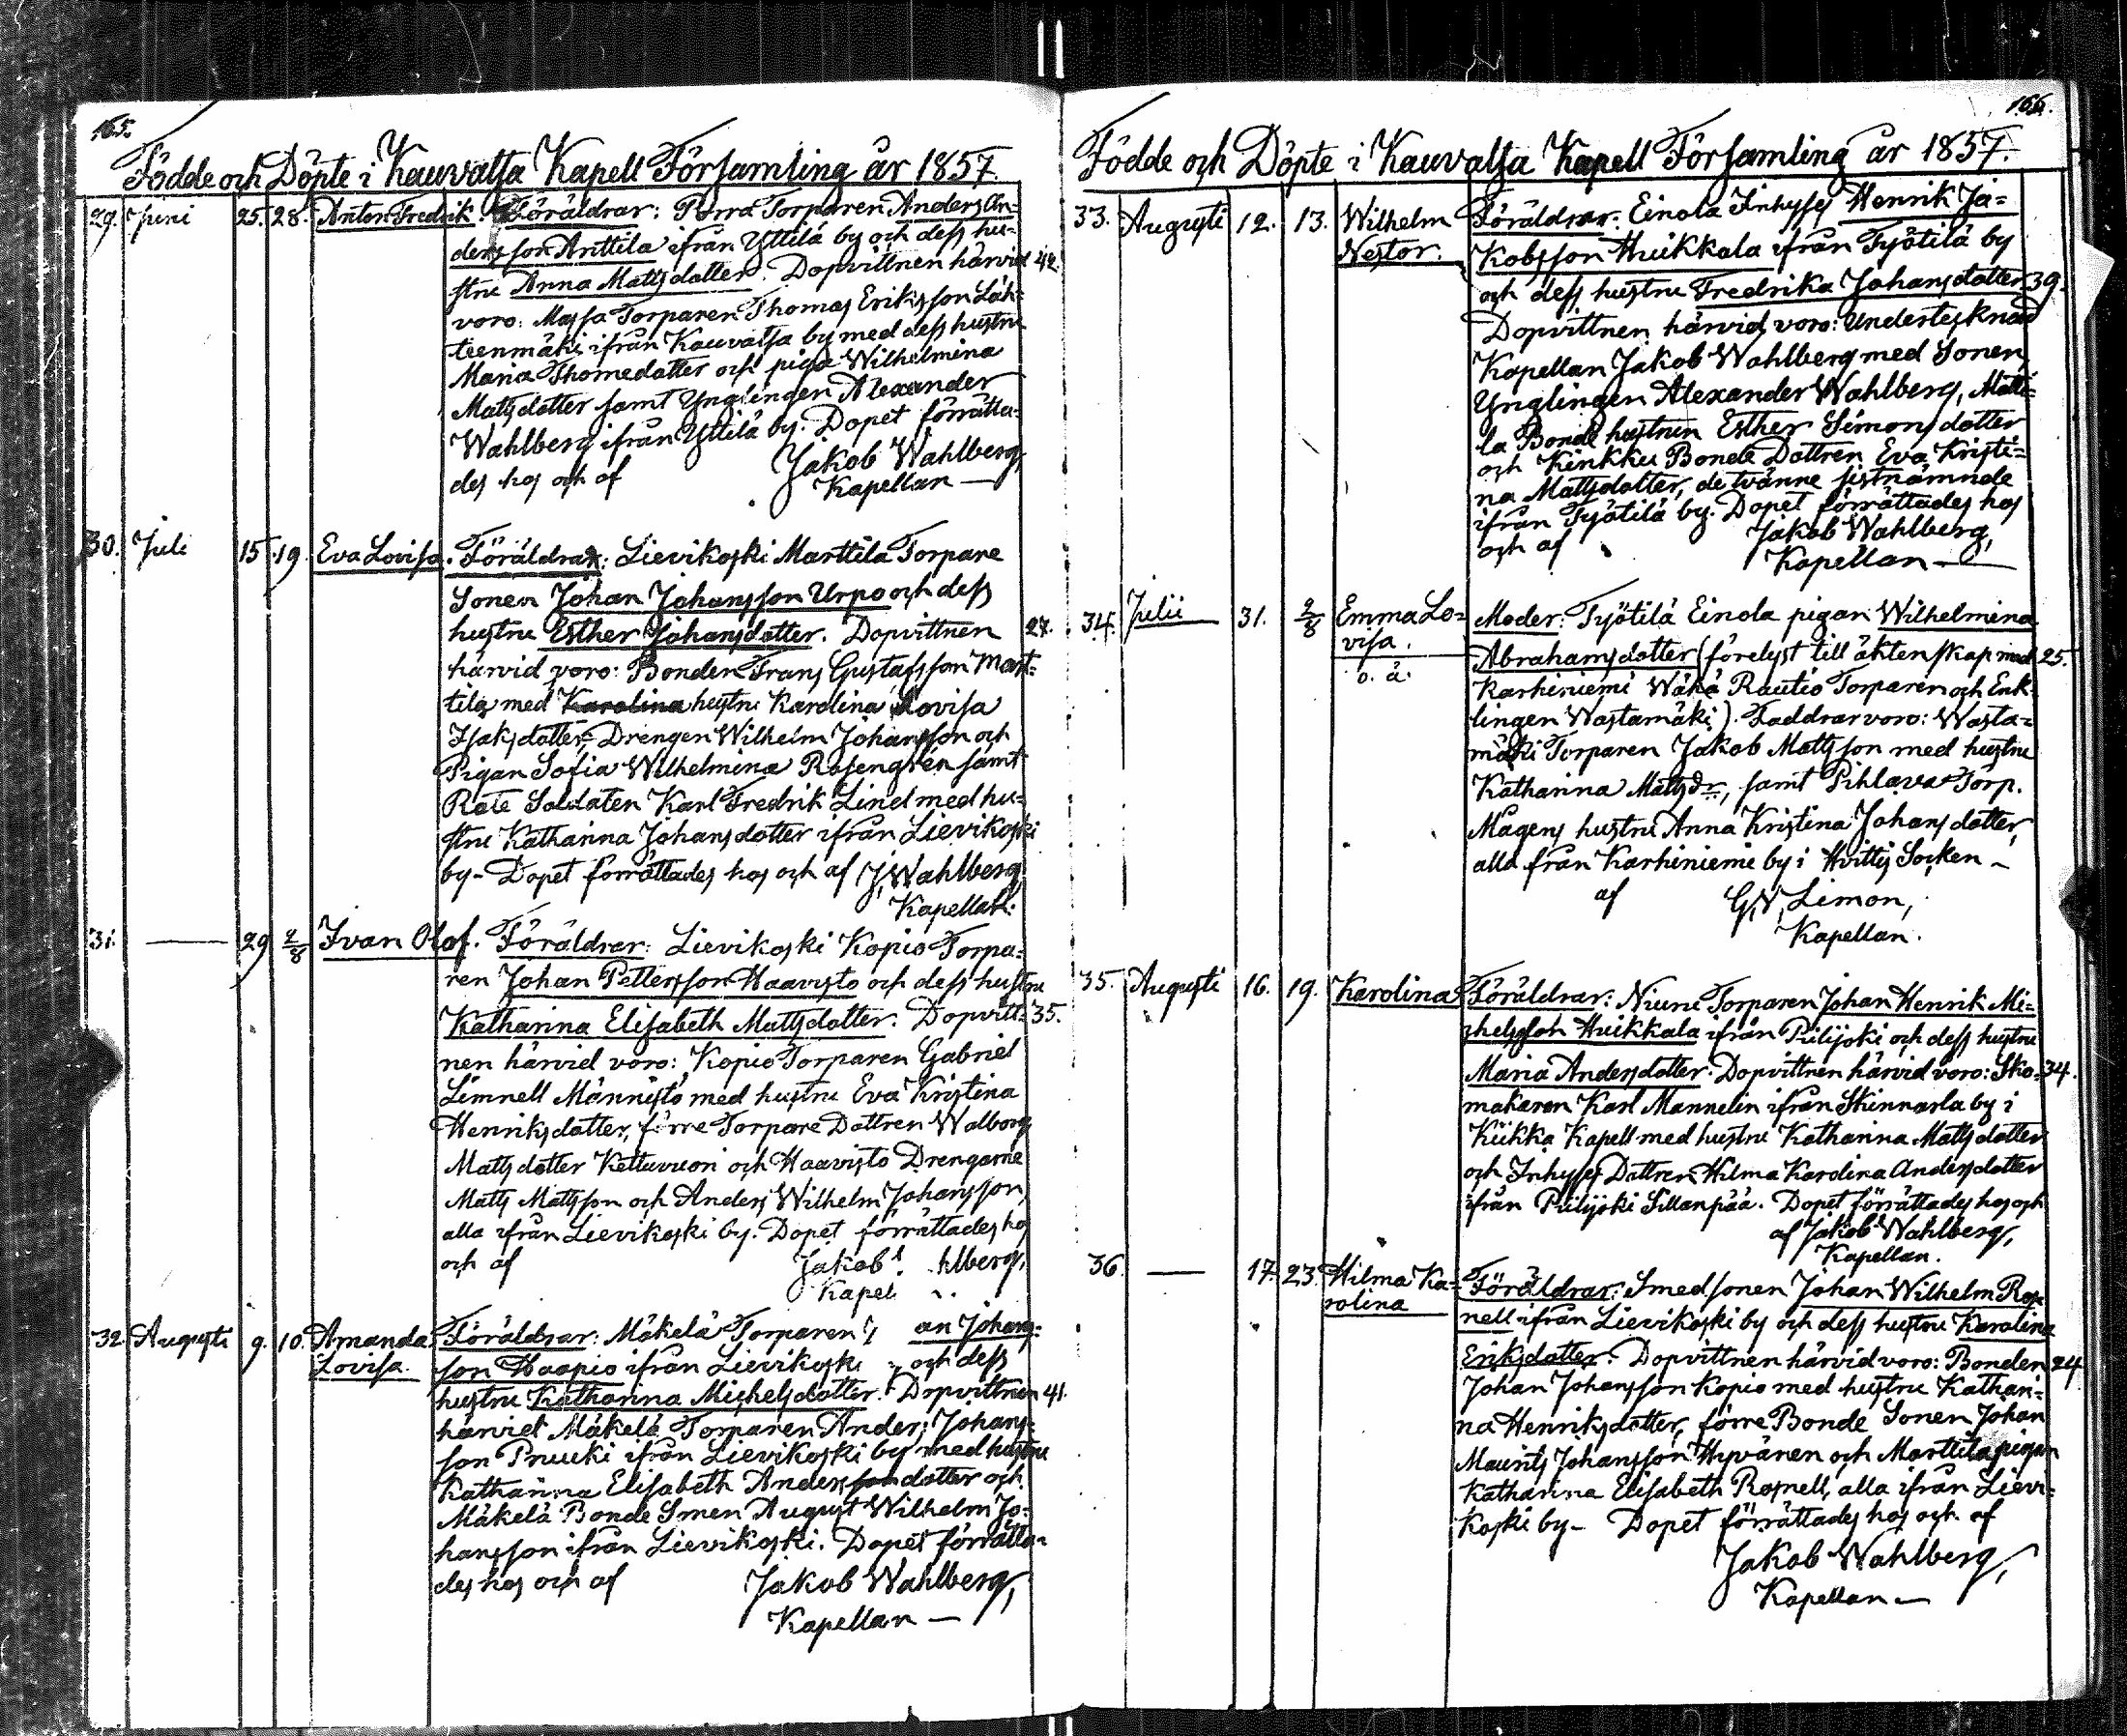 165.
Födde och Döpte i Kauvatsa Kapell Församling år 1857.
29. Juni 25. 28. Anton Fredrik. Föräldrar: Porra Torparen Anders An-
dersson Anttila ifrån Yttilä by och dess hu-
stru Anna Mattsdotter. Dopvittnen härvid 42.
voro: Massa Torparen Thomas Eriksson Läh-
teenmäki ifrån Kauvatsa by med dess hustru
Maria Thomedotter och piga Wilhelmina
Mattsdotter samt Ynglingen Alexander
Wahlberg ifrån Yttilä by. Dopet förrätta-
des hos och af Jakob Wahlberg,
Kapellan —
30. Juli 15. 19. Eva Lovisa. Föräldrar: Lievikoski Marttila Torpare
Sonen Johan Johansson Urpo och dess
hustru Esther Johansdotter. Dopvittnen 27.
härvid voro: Bonden Frans Gustafsson Mart-
tila med Karolina hustru Karolina Lovisa
Isaksdotter, Drengen Wilhelm Johansson och
Pigan Sofia Wilhelmina Rosengrén samt
Rote Soldaten Karl Fredrik Lind med hu-
stru Katharina Johansdotter ifrån Lievikoski
by – Dopet förrättades hos och af J. Wahlberg
Kapellan.
31. — 29 2/8 Ivan Olof. Föräldrar: Lievikoski Kopio Torpa-
ren Johan Pettersson Haavisto och dess hustru
Katharina Elisabeth Mattsdotter. Dopvitt- 35.
nen härvid voro: Kopio Torparen Gabriel
Limnell Männistö med hustru Eva Kristina
Henriksdotter, förre Torpare Dottren Walborg
Mattsdotter Kettuvuori och Haavisto Drengarne
Matts Mattsson och Anders Wilhelm Johansson,
alla ifrån Lievikoski by. Dopet förrättades hos
och af Jakob hlberg,
Kapel
32. Augusti 9. 10. Amanda Föräldrar: Mäkelä Torparen an Johans-
Lovisa. son Haapio ifrån Lievikoski och dess
hustru Katharina Michelsdotter. Dopvittnen 41.
härvid Mäkelä Torparen Anders Johans-
son Pruuki ifrån Lievikoski by med hustru
Katharina Elisabeth Andersson dotter och
Mäkelä Bonde Sonen August Wilhelm Jo-
hansson ifrån Lievikoski. Dopet förrätta-
des hos och af Jakob Wahlberg,
Kapellan —
166.
Födde och Döpte i Kauvatsa Kapell Församling år 1857.
33. Augusti 12. 13. Wilhelm Föräldrar: Einola Inhyses Henrik Ja-
Nestor. kobsson Huikkala ifrån Työtilä by
och dess hustru Fredrika Johansdotter 39.
Dopvittnen härvid voro: Undertecknad
Kapellan Jakob Wahlberg med Sonen,
Ynglingen Alexander Wahlberg, Matti-
la Bonde hustrun Esther Simonsdotter
och Kinkku Bonde Dottren Eva Kristi-
na Mattsdotter, de tvänne sistnämnde
ifrån Työtilä by. Dopet förrättades hos
och af Jakob Wahlberg,
Kapellan —
34. Julii 31. 2/8 Emma Lo- Moder: Työtilä Einola pigan Wilhelmina
visa. Abrahamsdotter (förelyst till äktenskap med 25.
o. ä. Karhiniemi Wäkä Rautio Torparen och Enk-
lingen Wastamäki). Faddrar voro: Wasta-
mäki Torparen Jakob Mattsson med hustru
Katharina Mattsdr, samt Pihlava Torp.
Mågens hustru Anna Kristina Johansdotter,
alla från Karhiniemi by i Hvittis Socken –
af G.N. Limon,
Kapellan.
35. Augusti 16. 19. Karolina Föräldrar: Niuni Torparen Johan Henrik Mi-
chelsson Huikkala ifrån Piilijoki och dess hustru
Maria Andersdotter. Dopvittnen härvid voro: Sko- 34.
makaren Karl Mannelin ifrån Skinnarla by i
Kiikka Kapell med hustru Katharina Mattsdotter
och Inhyses Dottren Hilma Karolina Andersdotter
ifrån Piilijoki Sillanpää. Dopet förrättades hos och
af Jakob Wahlberg,
Kapellan.
36. — 17. 23. Hilma Ka- Föräldrar: Smedsonen Johan Wilhelm Ros-
rolina nell ifrån Lievikoski by och dess hustru Karolina
Eriksdotter. Dopvittnen härvid voro: Bonden 24.
Johan Johansson Kopio med hustru Kathari-
na Henriksdotter, förre Bonde Sonen Johan
Maurits Johansson Hyvänen och Marttila pigan
Katharina Elisabeth Rosnell, alla ifrån Lievi-
koski by – Dopet förrättades hos och af
Jakob Wahlberg,
Kapellan —